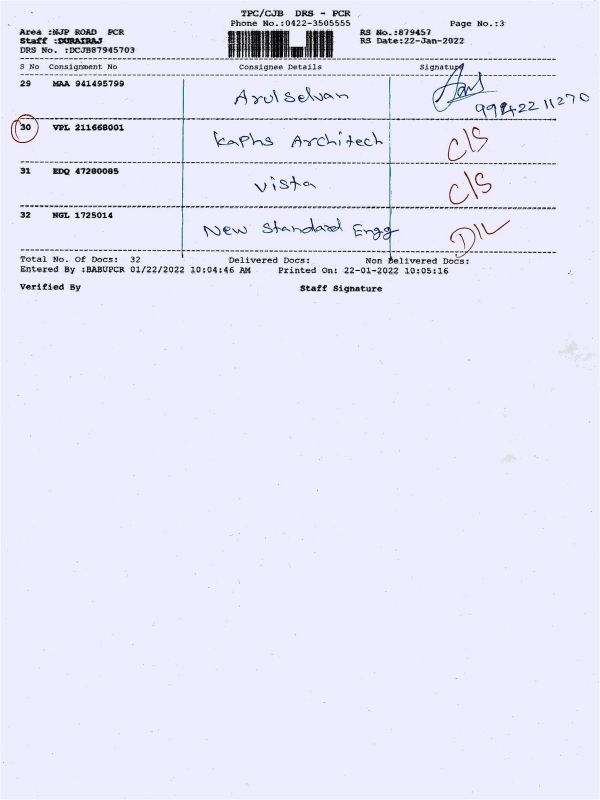 TPC/CJB DRS - PCR
Phone No.:0422-3505555 Page No.:3
Area :NJP ROAD PCR RS No.:879457
Staff :DURAIRAJ RS Date:22-Jan-2022
DRS No. :DCJB87945703
S No Consignment No Consignee Details Signature
29 MAA 941495799 Arulselvan 9942211270
30 VPL 211668001 Kaphs Architech C/S
31 EDQ 47280085 Vista C/S
32 NGL 1725014 New Standard Engg D/L
Total No. Of Docs: 32 Delivered Docs: Non Delivered Docs:
Entered By :BABUPCR 01/22/2022 10:04:46 AM Printed On: 22-01-2022 10:05:16
Verified By Staff Signature